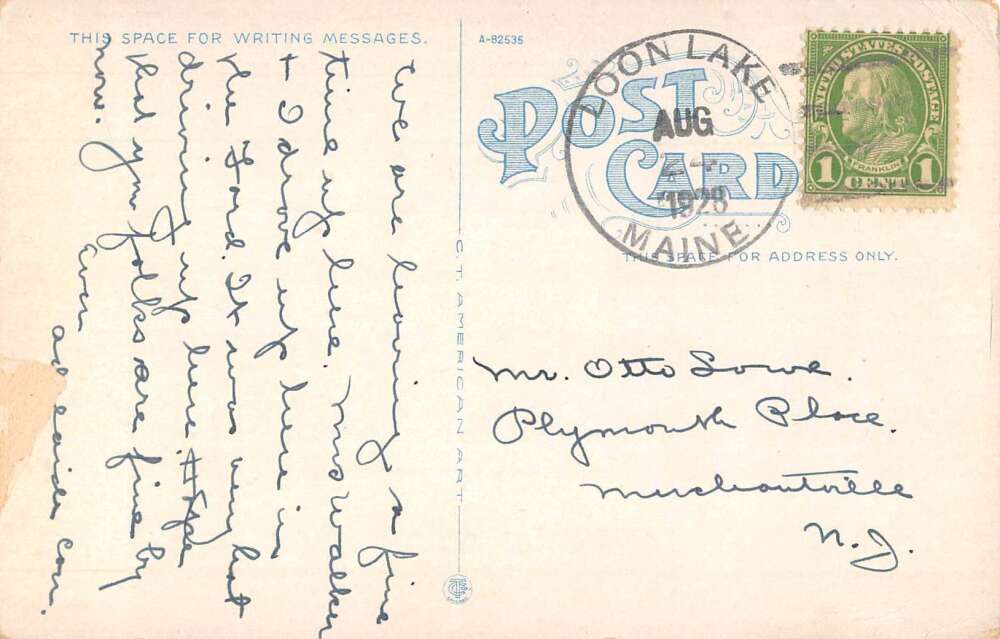 THIS SPACE FOR WRITING MESSAGES.
we are having a fine
time up here. Mrs Walker
+ I drove up here in
the Ford. It was very hot
driving up here. Hope
that you folks are fine by
now.
Ever
A-82535
POST CARD
THIS SPACE FOR ADDRESS ONLY.
C. T. AMERICAN ART
LOON LAKE
AUG
24
1928
MAINE
UNITED STATES POSTAGE
FRANKLIN
1 CENT 1
Mr. Otto Lowe.
Plymouth Place.
Merchantville
N. J.